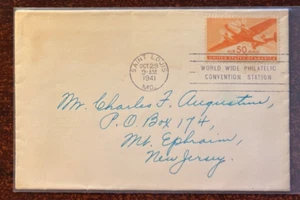 SAINT LOUIS
OCT 29
9-AM
1941
MO.
50
UNITED STATES OF AMERICA
WORLD WIDE PHILATELIC
CONVENTION STATION
Mr. Charles F. Augustine,
P.O Box 174,
Mt. Ephraim,
New Jersey.